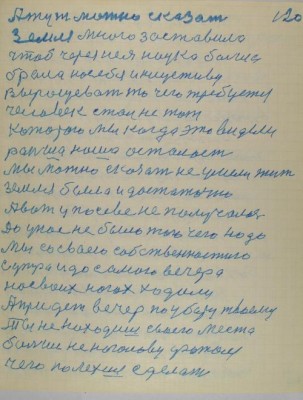 А тут можно сказат 120
Земля много заставила
чтоб через нея наука была
брала на себя инициативу
выращеват то чего требуется
человек стал не тот
которого мы когда это видели
раньша наша отсталост
мы можно сказат не умели жит
земля была и достаточно
А вот у посеве не получался
До у нас не было того чего надо
Мы со своего собственностого
с утра и до самого вечера
на своих ногах ходили
А придет вечер по убазу твоему
Ты не находиш своего места
болиш не на голову
чего полехш сделат